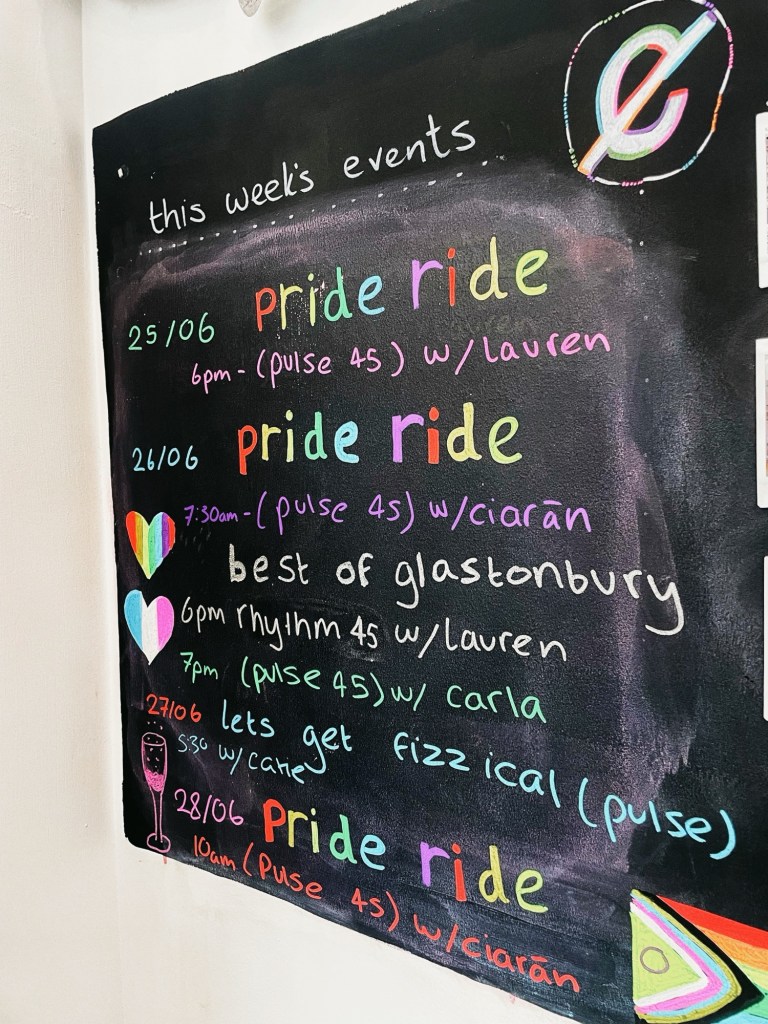 this week's events
25/06 pride ride
6pm - (pulse 45) w/lauren
26/06 pride ride
7:30am - (pulse 45) w/ciarān
best of glastonbury
6pm rhythm 45 w/lauren
7pm (pulse 45) w/ carla
27/06 lets get fizzical (pulse)
5:30 w/
28/06 Pride ride
10am (Pulse 45) w/ciarān